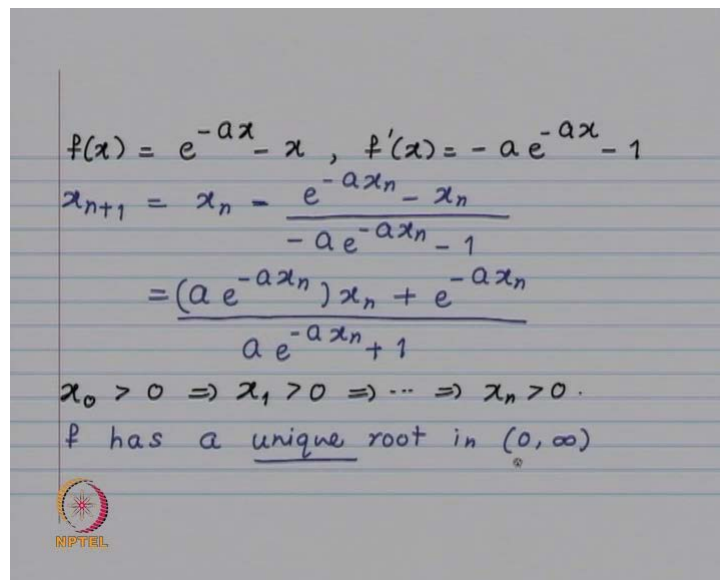 f(x) = e^{-ax} - x , f'(x) = - a e^{-ax} - 1
x_{n+1} = x_n - \frac{e^{-ax_n} - x_n}{-a e^{-ax_n} - 1}
= \frac{(a e^{-ax_n}) x_n + e^{-ax_n}}{a e^{-ax_n} + 1}
x_0 > 0 ⇒ x_1 > 0 ⇒ ... ⇒ x_n > 0 .
f has a unique root in (0, ∞)
NPTEL